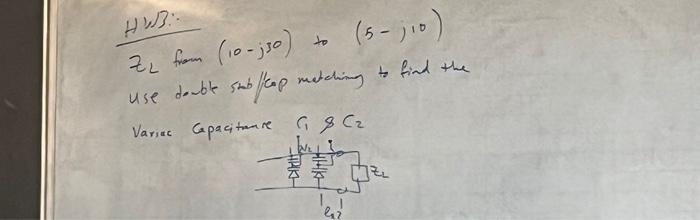 HW3:-
Z_L from (10-j30) to (5-j10)
Use double stub/cap matching to find the
Variac Capacitance C₁ & C₂
Z_L